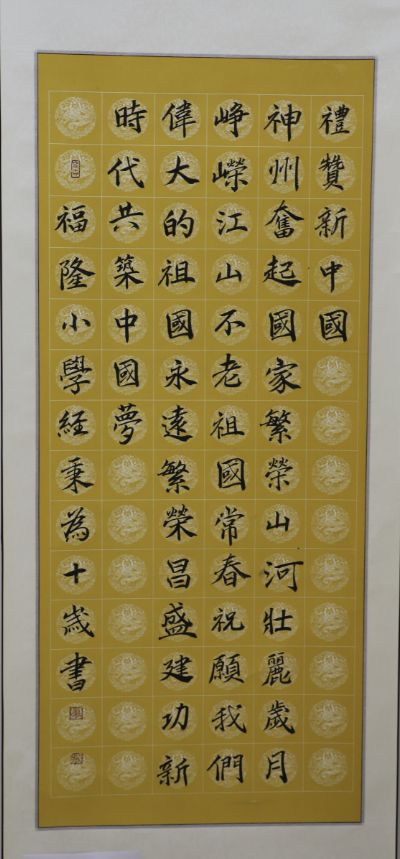 禮贊新中國
神州奮起國家繁榮山河壯麗歲月
崢嶸江山不老祖國常春祝願我們
偉大的祖國永遠繁榮昌盛建功新
時代共築中國夢
福隆小學経秉為十嵗書